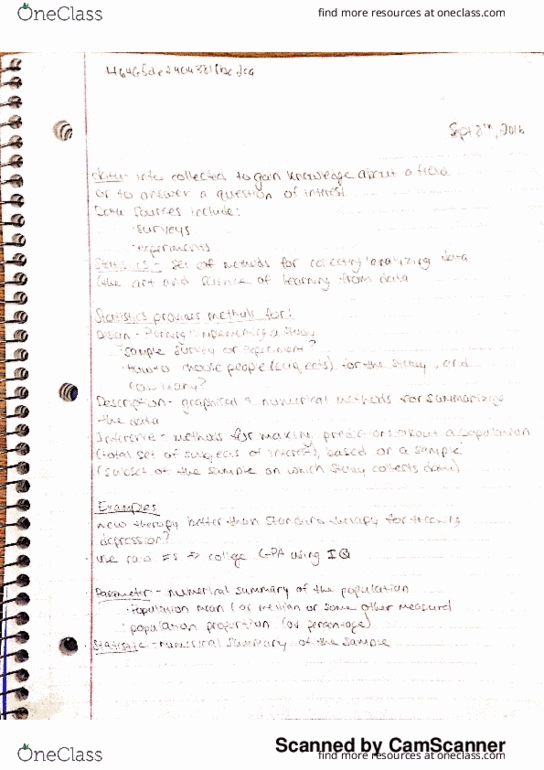 OneClass
find more resources at oneclass.com
Sept 8th, 2016
data- info collected to gain knowledge about a field
or to answer a question of interest
Data sources include:
·surveys
·experiments
Statistics- set of methods for collecting/analyzing data
(the art and science of learning from data
Statistics provides methods for:
Design - Planning/implementing a study
·sample survey or experiment?
·how to choose people (subjects) for the study, and
how many?
Description- graphical & numerical methods for summarizing
the data
Inference- methods for making predictions about a population
(total set of subjects of interest), based on a sample
(subset of the sample on which study collects data)
Examples
new therapy better than standard therapy for treating
depression?
use college GPA using IQ
Parameter- numerical summary of the population
·Population mean (or median or some other measure)
·population proportion (or percentage)
Statistic-numerical summary of the sample
Scanned by CamScanner
OneClass
find more resources at oneclass.com